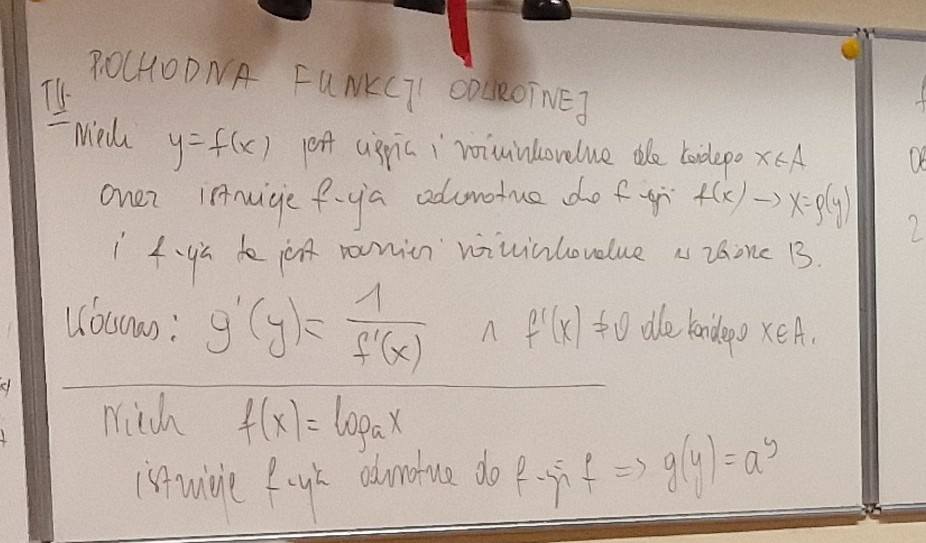 POCHODNA FUNKCJI ODWROTNEJ
Tw.
Niech y=f(x) jest ciągła i różniczkowalna dla każdego x∈A
oraz istnieje f-cja odwrotna do f-cji f(x) → x=g(y)
i f-cja ta jest również różniczkowalna w zbiorze B.
Wówczas: g'(y) = 1/f'(x) ∧ f'(x) ≠ 0 dla każdego x∈A.
Niech f(x) = logₐx
istnieje f-cja odwrotna do f-cji f => g(y) = aʸ
2